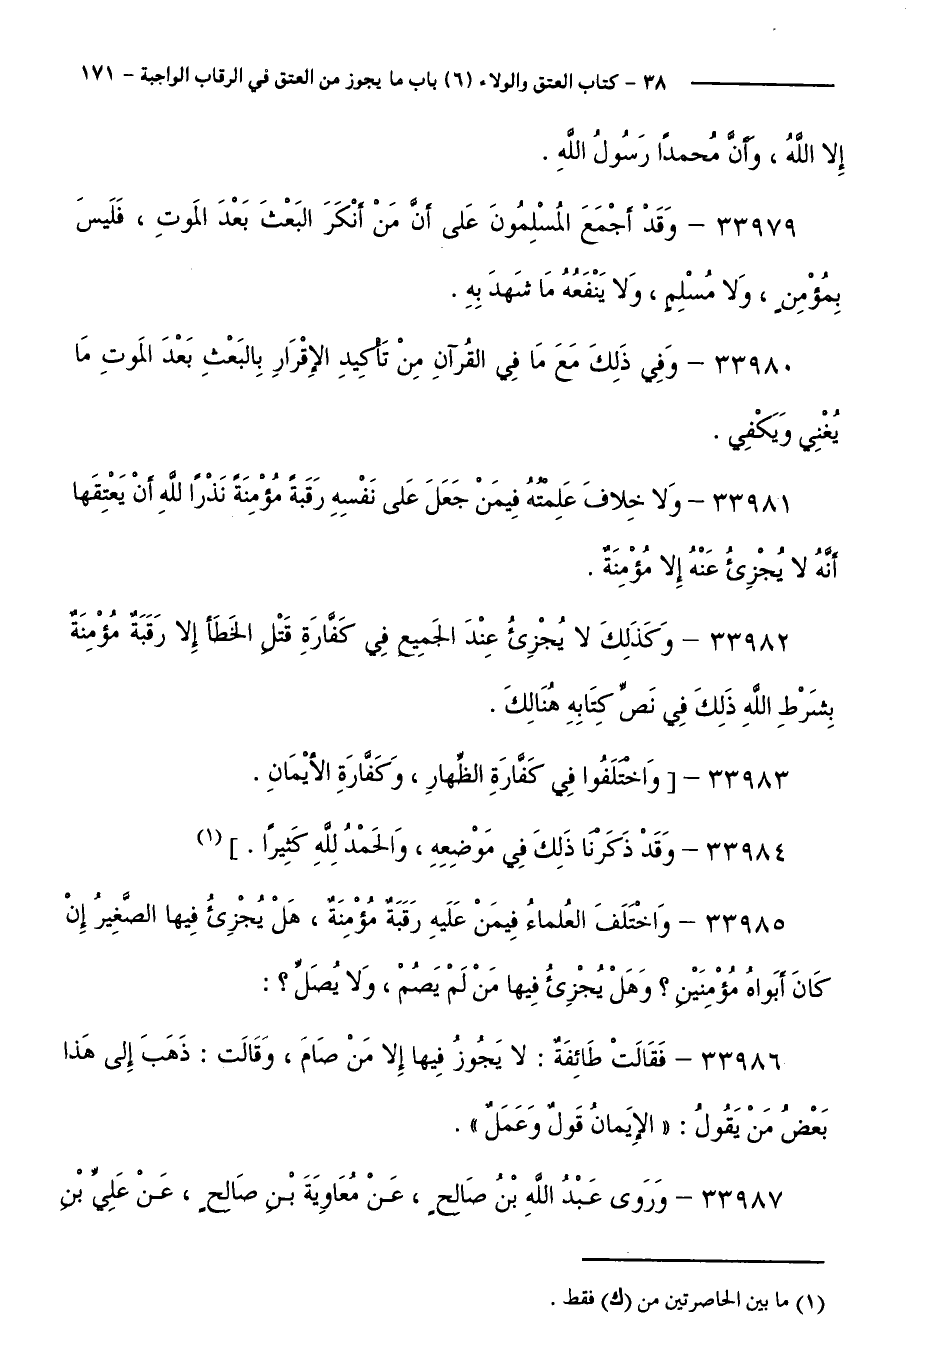 ٣٨ - كتاب العتق والولاء (٦) باب ما يجوز من العتق في الرقاب الواجبة - ١٧١
إِلا اللَّهُ ، وَأَنَّ مُحمدًا رَسُولُ اللَّهِ .
٣٣٩٧٩ - وَقَدْ أَجْمَعَ المُسْلِمُونَ عَلى أَنَّ مَنْ أَنْكَرَ البَعْثَ بَعْدَ المَوتِ ، فَلَيسَ
بِمُؤْمِنٍ ، وَلا مُسْلِمٍ ، وَلا يَنْفَعُهُ مَا شَهدَ بِهِ .
٣٣٩٨٠ - وَفِي ذَلِكَ مَعَ مَا فِي القُرآنِ مِنْ تَأْكِيدِ الإِقْرَارِ بِالبَعْثِ بَعْدَ المَوتِ مَا
يُغْنِي وَيَكْفِي .
٣٣٩٨١ - وَلا خِلافَ عَلِمْتُهُ فِيمَنْ جَعَلَ عَلى نَفْسِهِ رَقَبةً مُؤْمِنَةً نَذْرًا للَّهِ أَنْ يَعْتِقَها
أَنَّهُ لا يُجْزِئُ عَنْهُ إِلا مُؤْمِنَةٌ .
٣٣٩٨٢ - وَكَذَلِكَ لا يُجْزِئُ عِنْدَ الجَمِيعِ فِي كَفَّارَةِ قَتْلِ الخَطَأ إِلا رَقَبَةٌ مُؤْمِنَةٌ
بِشَرْطِ اللَّهِ ذَلِكَ فِي نَصِّ كِتَابِهِ هُنَالِكَ .
٣٣٩٨٣ - [ وَاخْتَلَفُوا فِي كَفَّارَةِ الظِّهارِ ، وَكَفَّارَةِ الأَيْمَانِ .
٣٣٩٨٤ - وَقَدْ ذَكَرْنَا ذَلِكَ فِي مَوْضِعِهِ ، وَالحَمْدُ لِلَّهِ كَثِيرًا . ] (١)
٣٣٩٨٥ - وَاخْتَلَفَ العُلماءُ فِيمَنْ عَلَيهِ رَقَبَةٌ مُؤْمِنَةٌ ، هَلْ يُجْزِئُ فِيها الصَّغِيرُ إِنْ
كَانَ أَبَواهُ مُؤْمِنَيْنِ ؟ وَهَلْ يُجْزِئُ فِيها مَنْ لَمْ يَصُمْ ، وَلا يُصَلِّ ؟ :
٣٣٩٨٦ - فَقَالَتْ طَائِفَةٌ : لا يَجُوزُ فِيها إِلا مَنْ صَامَ ، وَقَالَت : ذَهَبَ إِلى هَذا
بَعْضُ مَنْ يَقُولُ : « الإِيَمانُ قَولٌ وَعَمَلٌ » .
٣٣٩٨٧ - وَرَوى عَبْدُ اللَّهِ بْنُ صَالِحٍ ، عَنْ مُعَاوِيَةَ بْنِ صَالِحٍ ، عَنْ عَلِيِّ بْنِ
(١) ما بين الحاصرتين من (ك) فقط .